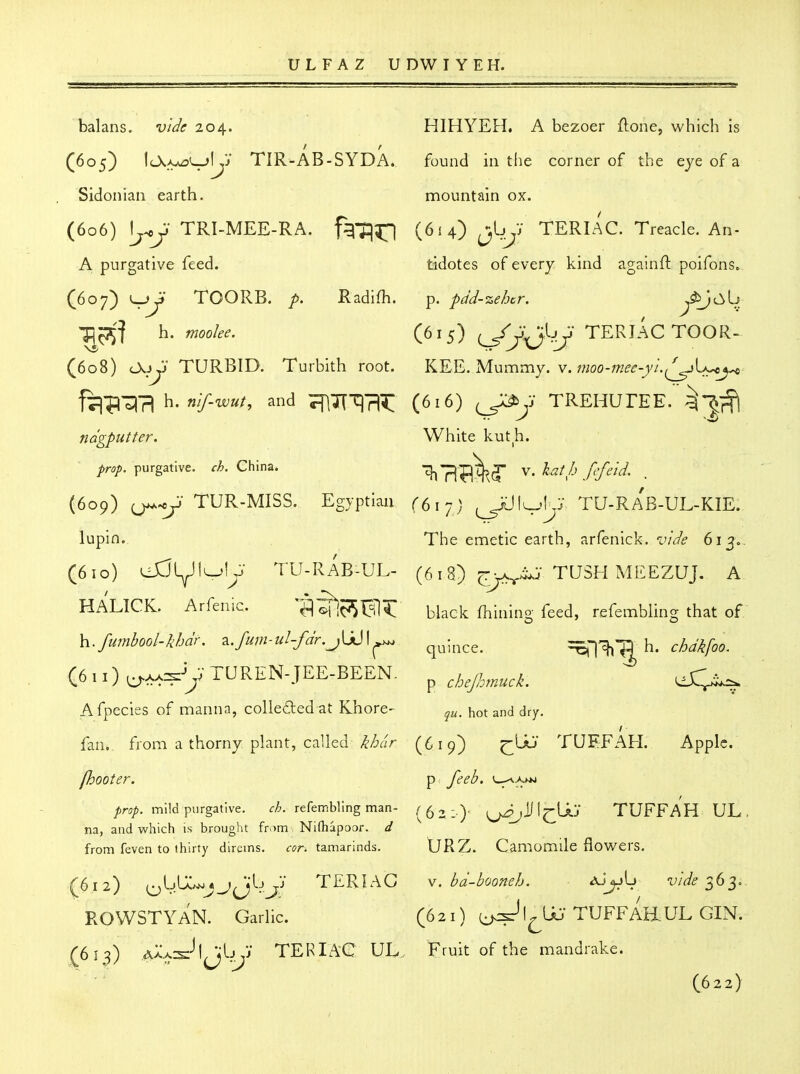 ULFAZ UDWIYEH.
balans. vide 204.
(605) TIR-AB-SYDA.
Sidonian earth.
(606) TRI-MEE-RA.
A purgative feed.
(607) TOORB. p. Radiſh.
h. moolee.
(608) TURBID. Turbith root.
h. niſ-wut, and
nagputter.
prop. purgative. ch. China.
(609) TUR-MISS. Egyptian
lupin.
(610) TU-RAB-UL-
HALICK. Arſenic.
h. ſumbool-khár. a. ſum-ul-fár.
(611) TUREN-JEE-BEEN.
A ſpecies of manna, collected at Khore-
ſan, from a thorny plant, called khár
ſhooter.
prop. mild purgative. ch. reſembling man-
na, and which is brought from Niſhápoor. d
from ſeven to thirty direms. cor. tamarinds.
(612) TERIAC
ROWSTYAN. Garlic.
(613) TERIAC UL
HIHYEH. A bezoer ſtone, which is
found in the corner of the eye of a
mountain ox.
(614) TERIAC. Treacle. An-
tidotes of every kind againſt poiſons.
p. pád-zeher. پادزهر
(615) TERIAC TOOR-
KEE. Mummy. v. moo-mee-yi.
(616) TREHUTEE.
White kuth.
v. kath ſefeid.
(617) TU-RAB-UL-KIE.
The emetic earth, arſenick. vide 613.
(618) TUSH MEEZUJ. A
black ſhining ſeed, reſembling that of
quince. h. chákſoo.
p cheſhmuck. چشمک
qu. hot and dry.
(619) تفاح TUFFAH. Apple.
p ſeeb. سیب
(620) TUFFAH UL
URZ. Camomile flowers.
v. bá-booneh. بابونه vide 363.
(621) TUFFAH UL GIN.
Fruit of the mandrake.
(622)